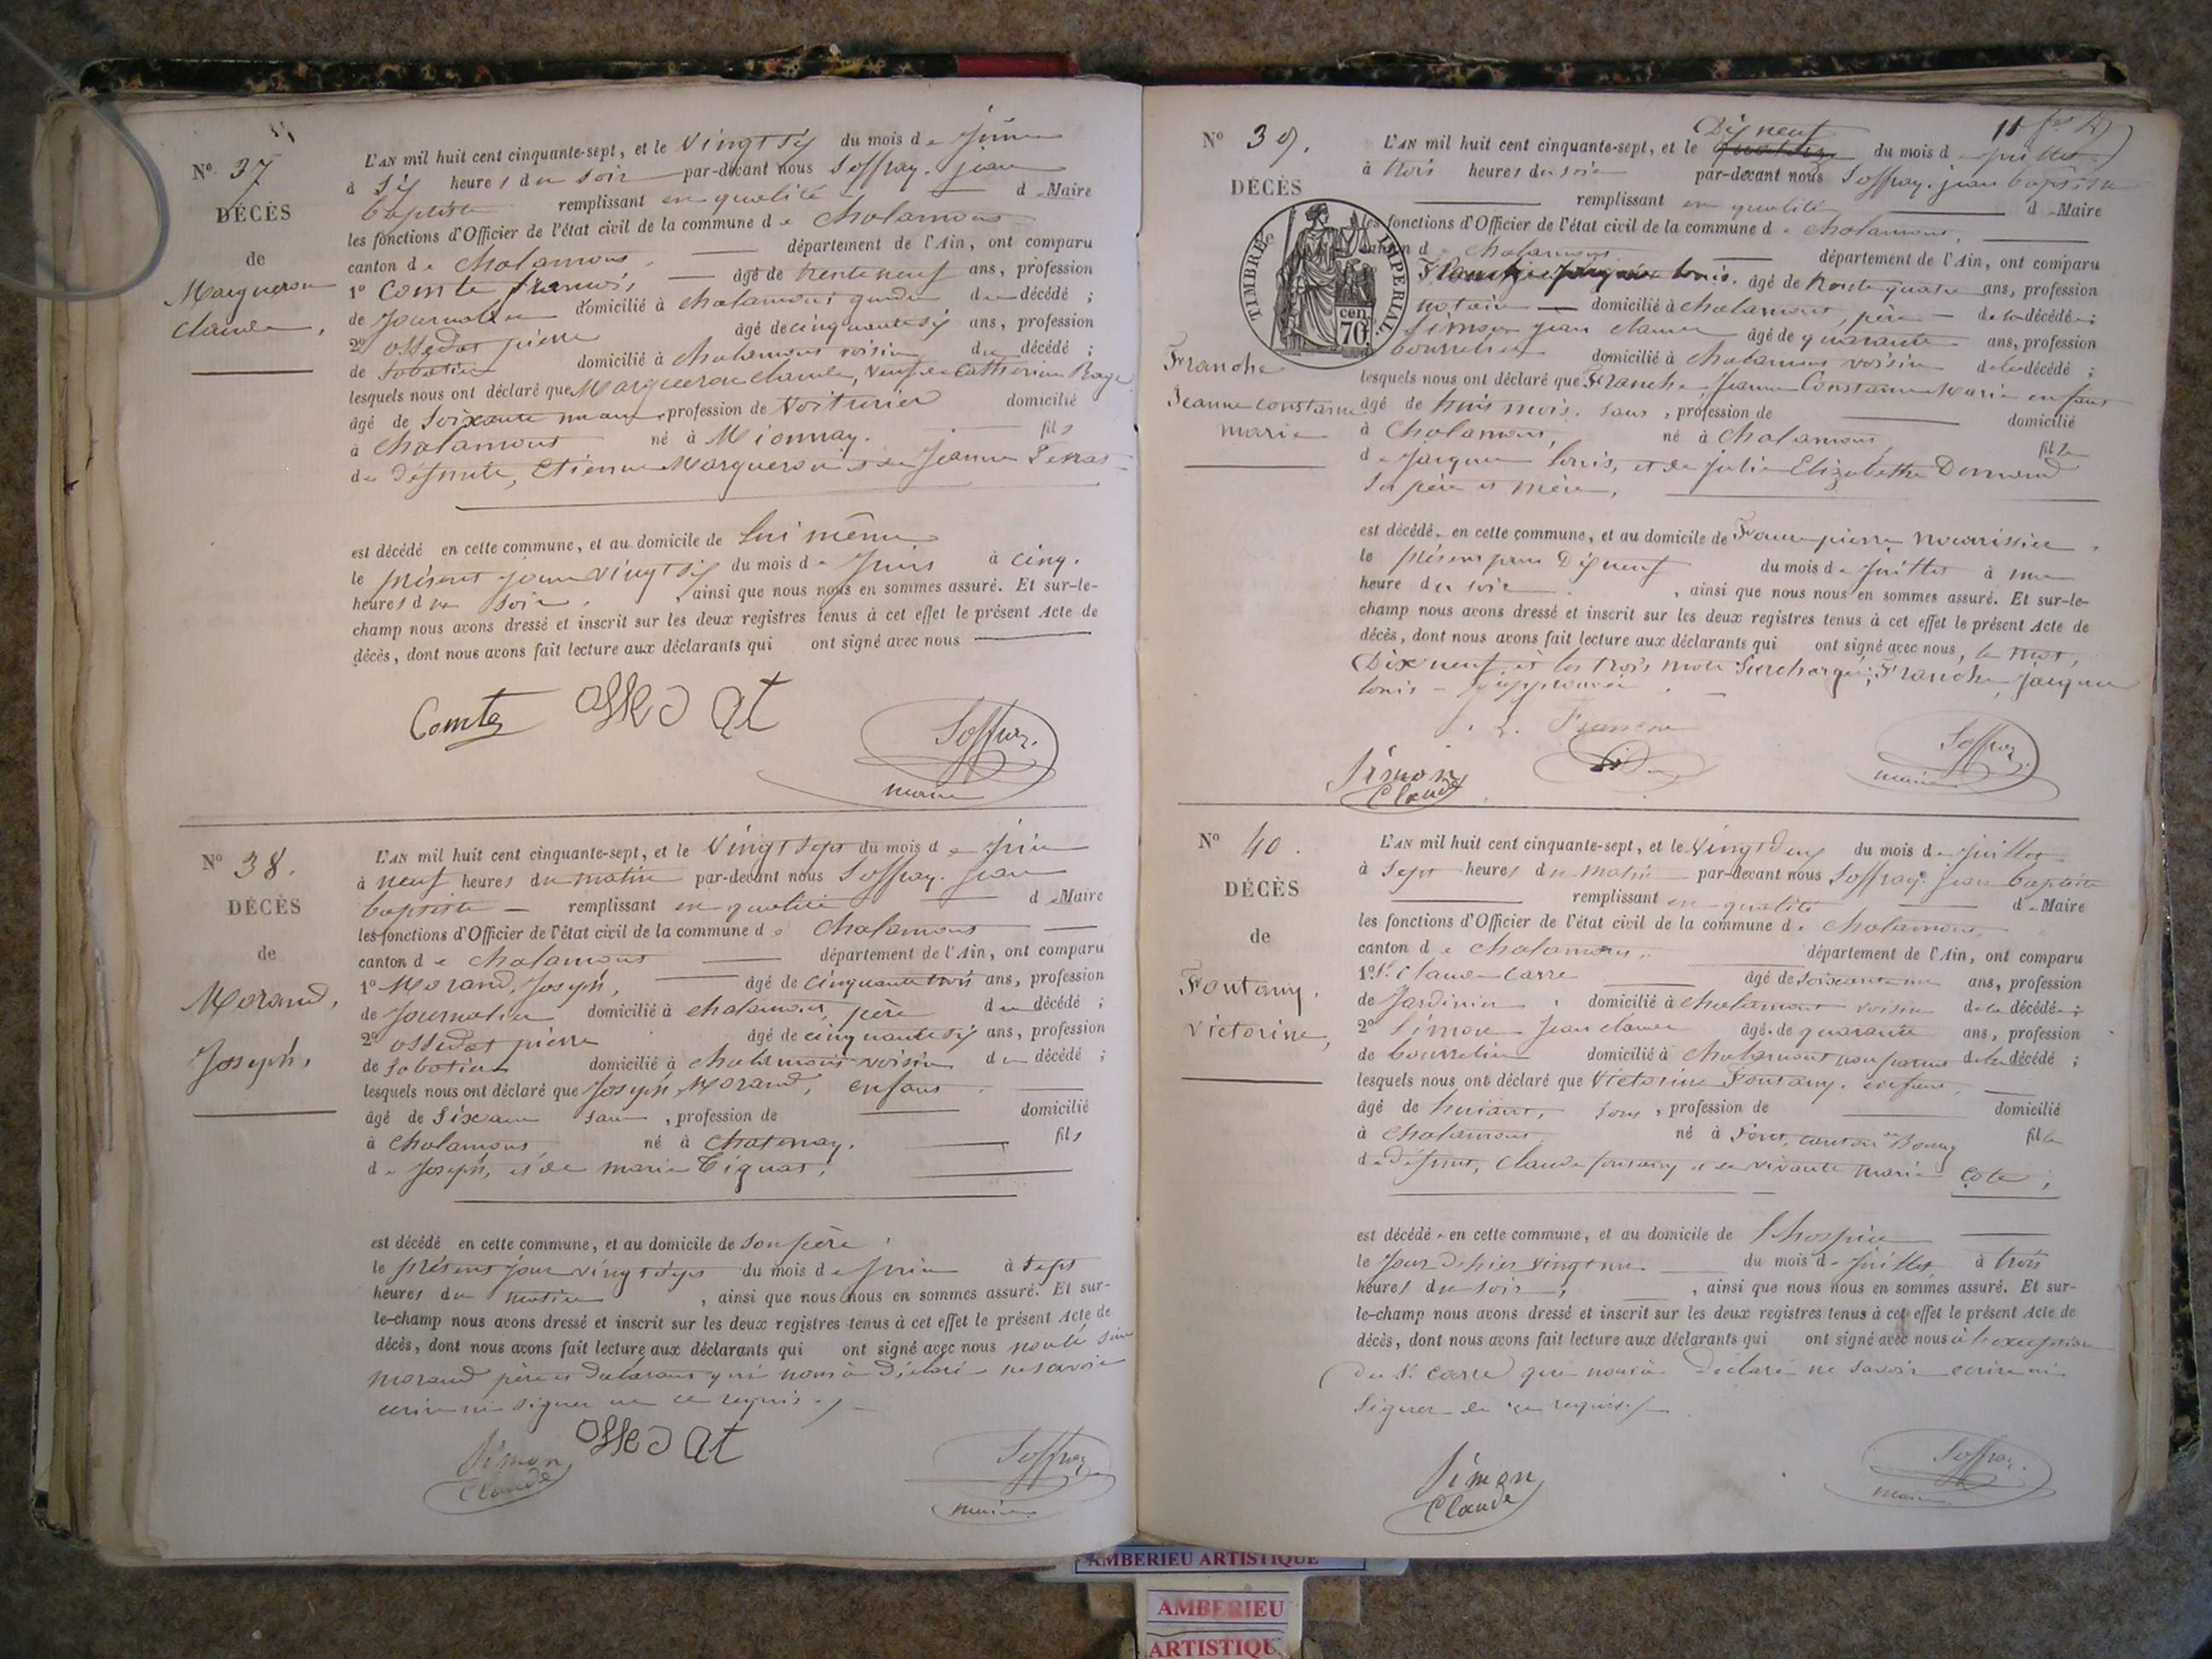 N° 37
DÉCÈS
de
Margueron
Claude,
L'AN mil huit cent cinquante-sept, et le Vingt Six du mois de Juin
à Six heures du soir par-devant nous Soffray. jean
baptiste remplissant en qualité de Maire
les fonctions d'Officier de l'état civil de la commune de Chalamont
canton de Chalamont, département de l'Ain, ont comparu
1° Comte françois, âgé de trente neuf ans, profession
de Journalier domicilié à Chalamont du décédé ;
2° ossedat pierre âgé de cinquante six ans, profession
de Sabotier domicilié à Chalamont voisin du décédé ;
lesquels nous ont déclaré que Margueron Claude, veuf de Catherine
âgé de Soixante profession de Voiturier domicilié
à Chalamont né à Mionnay. fils
de défunts, Etienne Margueron et de Jeanne
est décédé en cette commune, et au domicile de lui même
le présent jour vingt six du mois de Juin à cinq.
heures du soir, ainsi que nous nous en sommes assuré. Et sur-le-
champ nous avons dressé et inscrit sur les deux registres tenus à cet effet le présent Acte de
décès, dont nous avons fait lecture aux déclarants qui ont signé avec nous
Comte ossedat Soffray
maire
N° 38.
DÉCÈS
de
Morand,
Joseph,
L'AN mil huit cent cinquante-sept, et le Vingt Sept du mois de Juin
à neuf heures du matin par-devant nous Soffray. jean
baptiste remplissant en qualité de Maire
les fonctions d'Officier de l'état civil de la commune de Chalamont
canton de Chalamont département de l'Ain, ont comparu
1° Morand, Joseph, âgé de cinquante trois ans, profession
de Journalier domicilié à Chalamont, père du décédé ;
2° ossedat pierre âgé de cinquante six ans, profession
de Sabotier domicilié à Chalamont voisin du décédé ;
lesquels nous ont déclaré que Joseph Morand, enfant
âgé de Six ans sans, profession de domicilié
à Chalamont né à Chatenay. fils
de Joseph, et de marie
est décédé en cette commune, et au domicile de son père,
le présent jour vingt sept du mois de Juin à sept
heures du matin, ainsi que nous nous en sommes assuré. Et sur-
le-champ nous avons dressé et inscrit sur les deux registres tenus à cet effet le présent Acte de
décès, dont nous avons fait lecture aux déclarants qui ont signé avec nous
morand père et déclarant qui nous a déclaré ne savoir
écrire ni signer de ce requis.
Simon
Claude
ossedat Soffray
maire
N° 39.
DÉCÈS
TIMBRE IMPÉRIAL
70 cen
Franche
Jeanne Constance
marie
Dix neuf
L'AN mil huit cent cinquante-sept, et le du mois de juillet
à trois heures du soir par-devant nous Soffray. jean baptiste
remplissant en qualité de Maire
les fonctions d'Officier de l'état civil de la commune de Chalamont,
canton de Chalamont département de l'Ain, ont comparu
Franche Jacques Louis. âgé de trente quatre ans, profession
notaire domicilié à Chalamont, père de la décédée ;
Simon jean claude âgé de quarante ans, profession
bourrelier domicilié à Chalamont voisin de la décédée ;
lesquels nous ont déclaré que Franche, Jeanne Constance Marie enfant
âgé de trois mois. sans, profession de domicilié
à Chalamont, né à Chalamont, fille
de Jacques Louis, et de Julie Elizabethe
ses père et mère,
est décédée en cette commune, et au domicile de pierre nourrissier
le présent jour Dix neuf du mois de Juillet à une
heure du soir, ainsi que nous nous en sommes assuré. Et sur-le-
champ nous avons dressé et inscrit sur les deux registres tenus à cet effet le présent Acte de
décès, dont nous avons fait lecture aux déclarants qui ont signé avec nous, le mot,
Dix neuf, et les trois mots Surchargés; Franche, jacques
Louis
Simon
Claude
Franche
Soffray
maire
N° 40.
DÉCÈS
de
Fontany.
Victorine,
L'AN mil huit cent cinquante-sept, et le Vingt Deux du mois de Juillet
à Sept heures du matin par-devant nous Soffray. jean baptiste
remplissant en qualité de Maire
les fonctions d'Officier de l'état civil de la commune de Chalamont
canton de Chalamont département de l'Ain, ont comparu
1° Sr. Claude Carre âgé de ans, profession
de Jardinier domicilié à Chalamont voisin de la décédée ;
2° Simon Jean claude âgé de quarante ans, profession
de bourrelier domicilié à Chalamont non parent de la décédé ;
lesquels nous ont déclaré que Victorine Fontany. enfant
âgé de huit ans, sans, profession de domicilié
à Chalamont, né à canton de Bourg fille
de défunt, Claude fontany et de vivante Marie Cote ;
est décédée en cette commune, et au domicile de l'hospice
le Jour d'hier vingt un du mois de Juillet à trois
heures du soir, ainsi que nous nous en sommes assuré. Et sur-
le-champ nous avons dressé et inscrit sur les deux registres tenus à cet effet le présent Acte de
décès, dont nous avons fait lecture aux déclarants qui ont signé avec nous à l'exception
du Sr. Carre qui nous a Déclaré ne savoir écrire ni
Signer de ce requis.
Simon
Claude
Soffray
maire
AMBERIEU ARTISTIQUE
AMBERIEU
ARTISTIQU